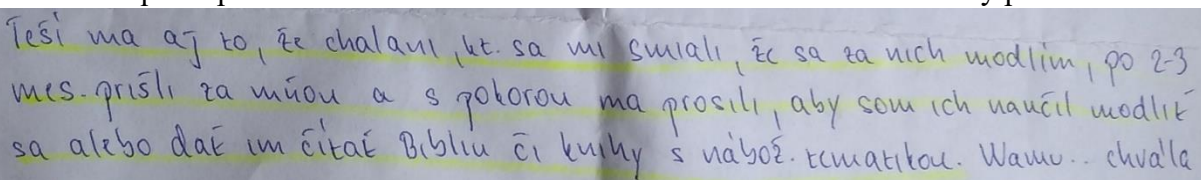 Teší ma aj to, že chalani, kt. sa mi smiali, že sa za nich modlím, po 2-3
mes. prišli za mňou a s pokorou ma prosili, aby som ich naučil modliť
sa alebo dať im čítať Bibliu či knihy s nábož. tematikou. .. chvála